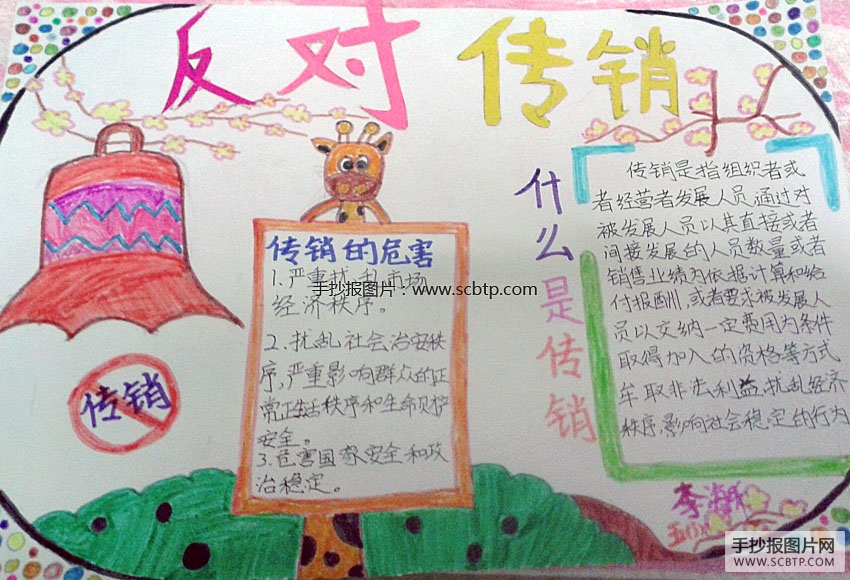 反对 传销
传销的危害
1.严重扰乱市场
手抄报图片：www.scbtp.com
经济秩序。
2.扰乱社会治安秩
序，严重影响群众的正
常正生活秩序和生命财产
安全。
3.危害国家安全和政
治稳定。
传销
什么是传销
传销是指组织者或
者经营者发展人员，通过对
被发展人员以其直接或者
间接发展的人员数量或者
销售业绩为依据计算和给
付报酬，或者要求被发展人
员以交纳一定费用为条件
取得加入的资格等方式
牟取非法利益，扰乱经济
秩序，影响社会稳定的行为
李海
手抄报图片网
WWW.SCBTP.COM